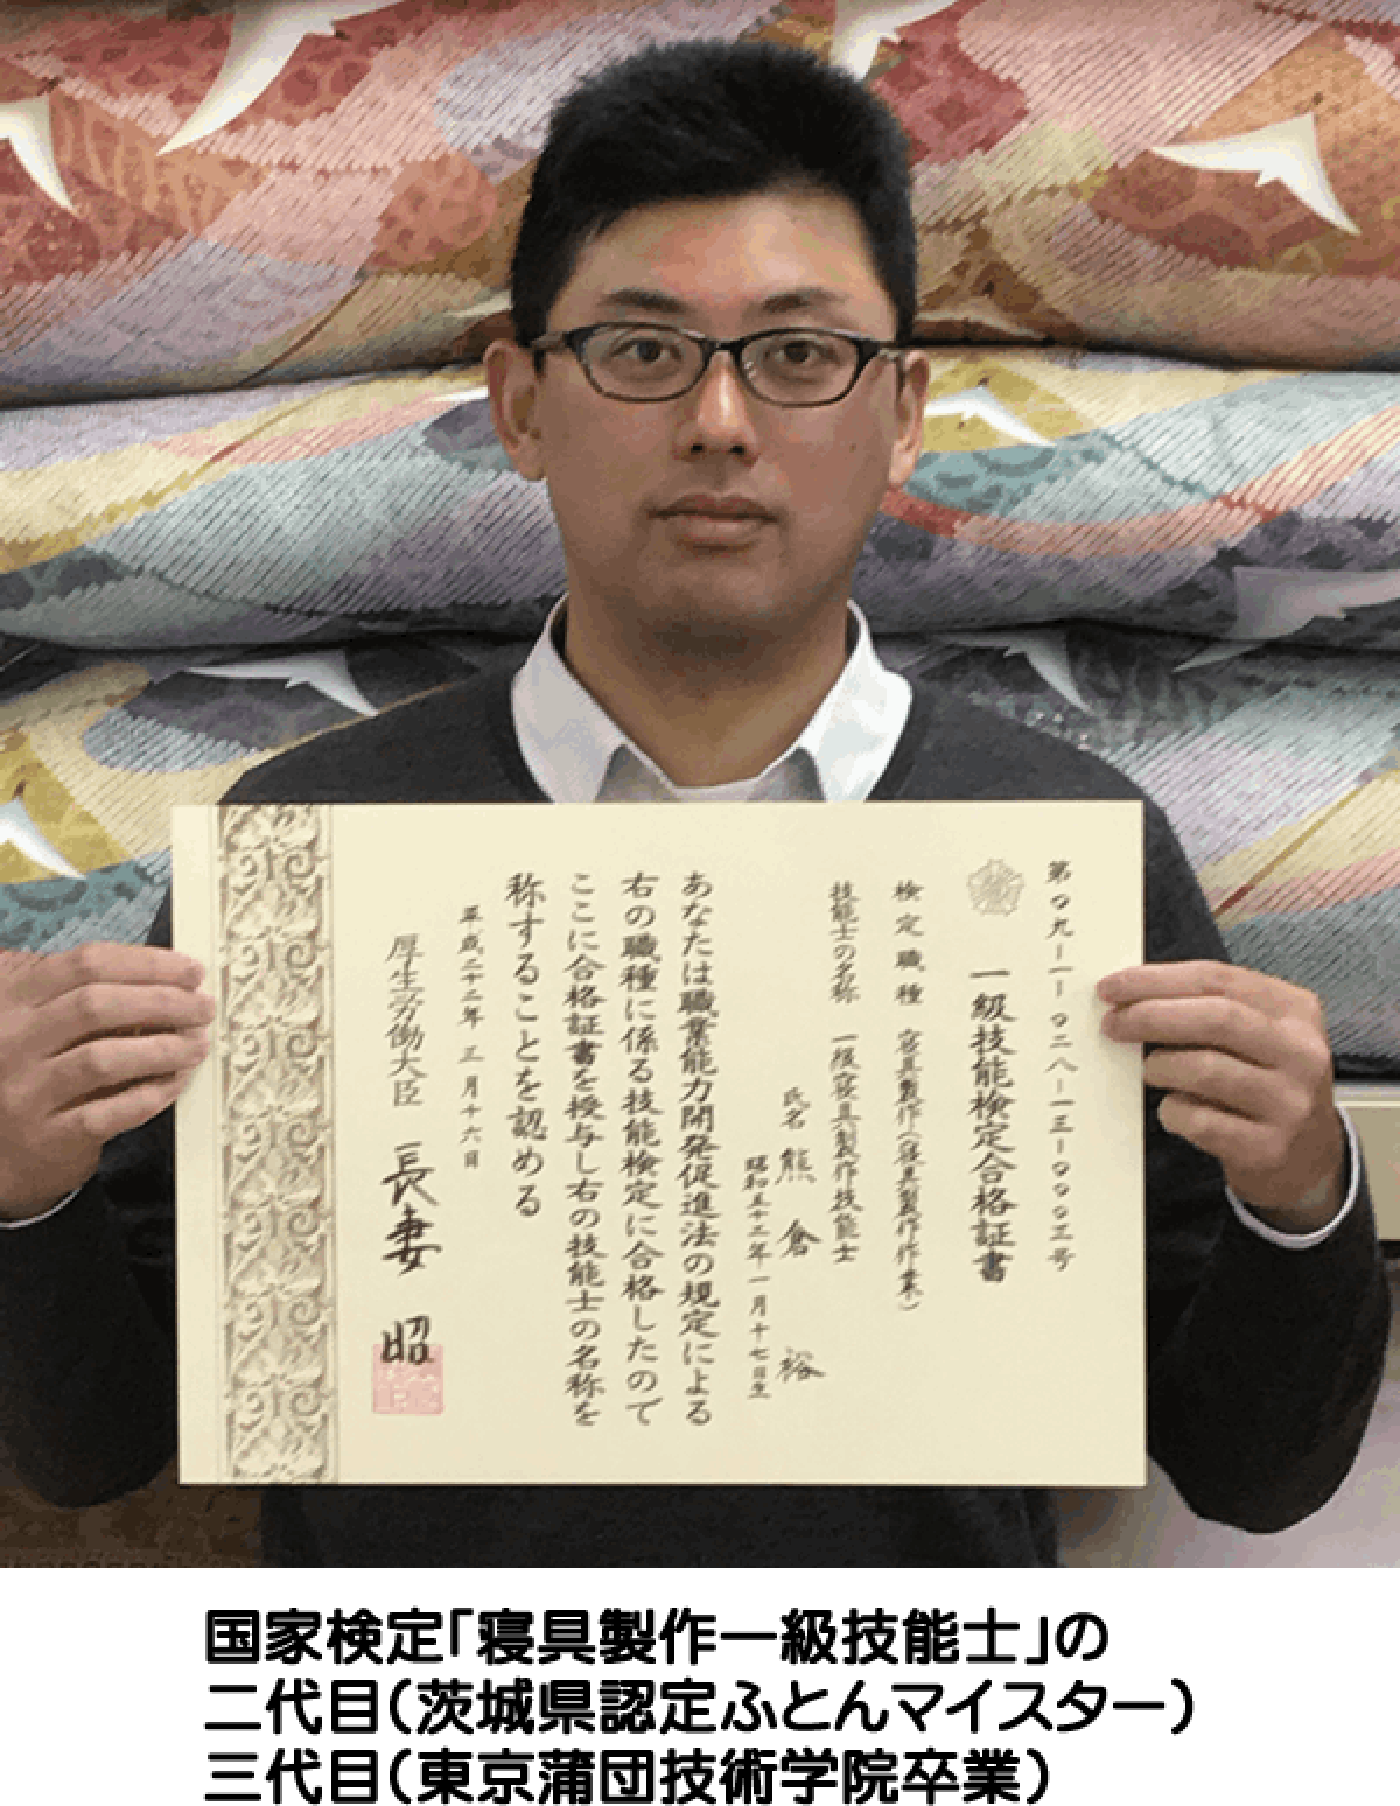 第〇九-一-〇二八-一三-〇〇〇三号
一級技能検定合格証書
検定職種 寝具製作(寝具製作作業)
技能士の名称 一級寝具製作技能士
氏名 熊倉 裕
昭和五十三年一月十七日生
あなたは職業能力開発促進法の規定による
右の職種に係る技能検定に合格したので
ここに合格証書を授与し右の技能士の名称を
称することを認める
平成二十二年三月十六日
厚生労働大臣 長妻 昭
国家検定「寝具製作一級技能士」の
二代目(茨城県認定ふとんマイスター)
三代目(東京蒲団技術学院卒業)